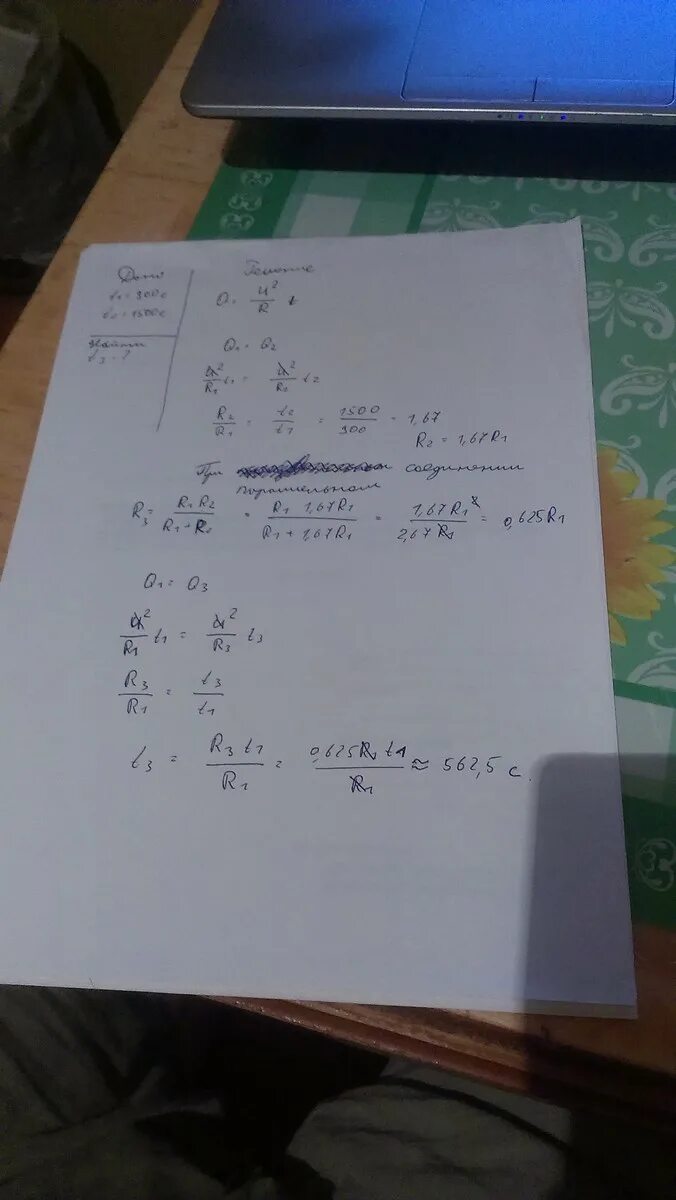 Дано
t₁ = 900 c
t₂ = 1500 c
Найти
t₃ - ?
Решение
Q = U²/R t
Q₁ = Q₂
U²/R₁ t₁ = U²/R₂ t₂
R₂/R₁ = t₂/t₁ = 1500/900 = 1,67
R₂ = 1,67R₁
При соединении
паралельном
R₃ = R₁R₂/(R₁+R₂) = R₁ 1,67R₁/(R₁ + 1,67R₁) = 1,67R₁²/2,67R₁ = 0,625R₁
Q₁ = Q₃
U²/R₁ t₁ = U²/R₃ t₃
R₃/R₁ = t₃/t₁
t₃ = R₃ t₁/R₁ = 0,625R₁ t₁/R₁ ≈ 562,5 c.